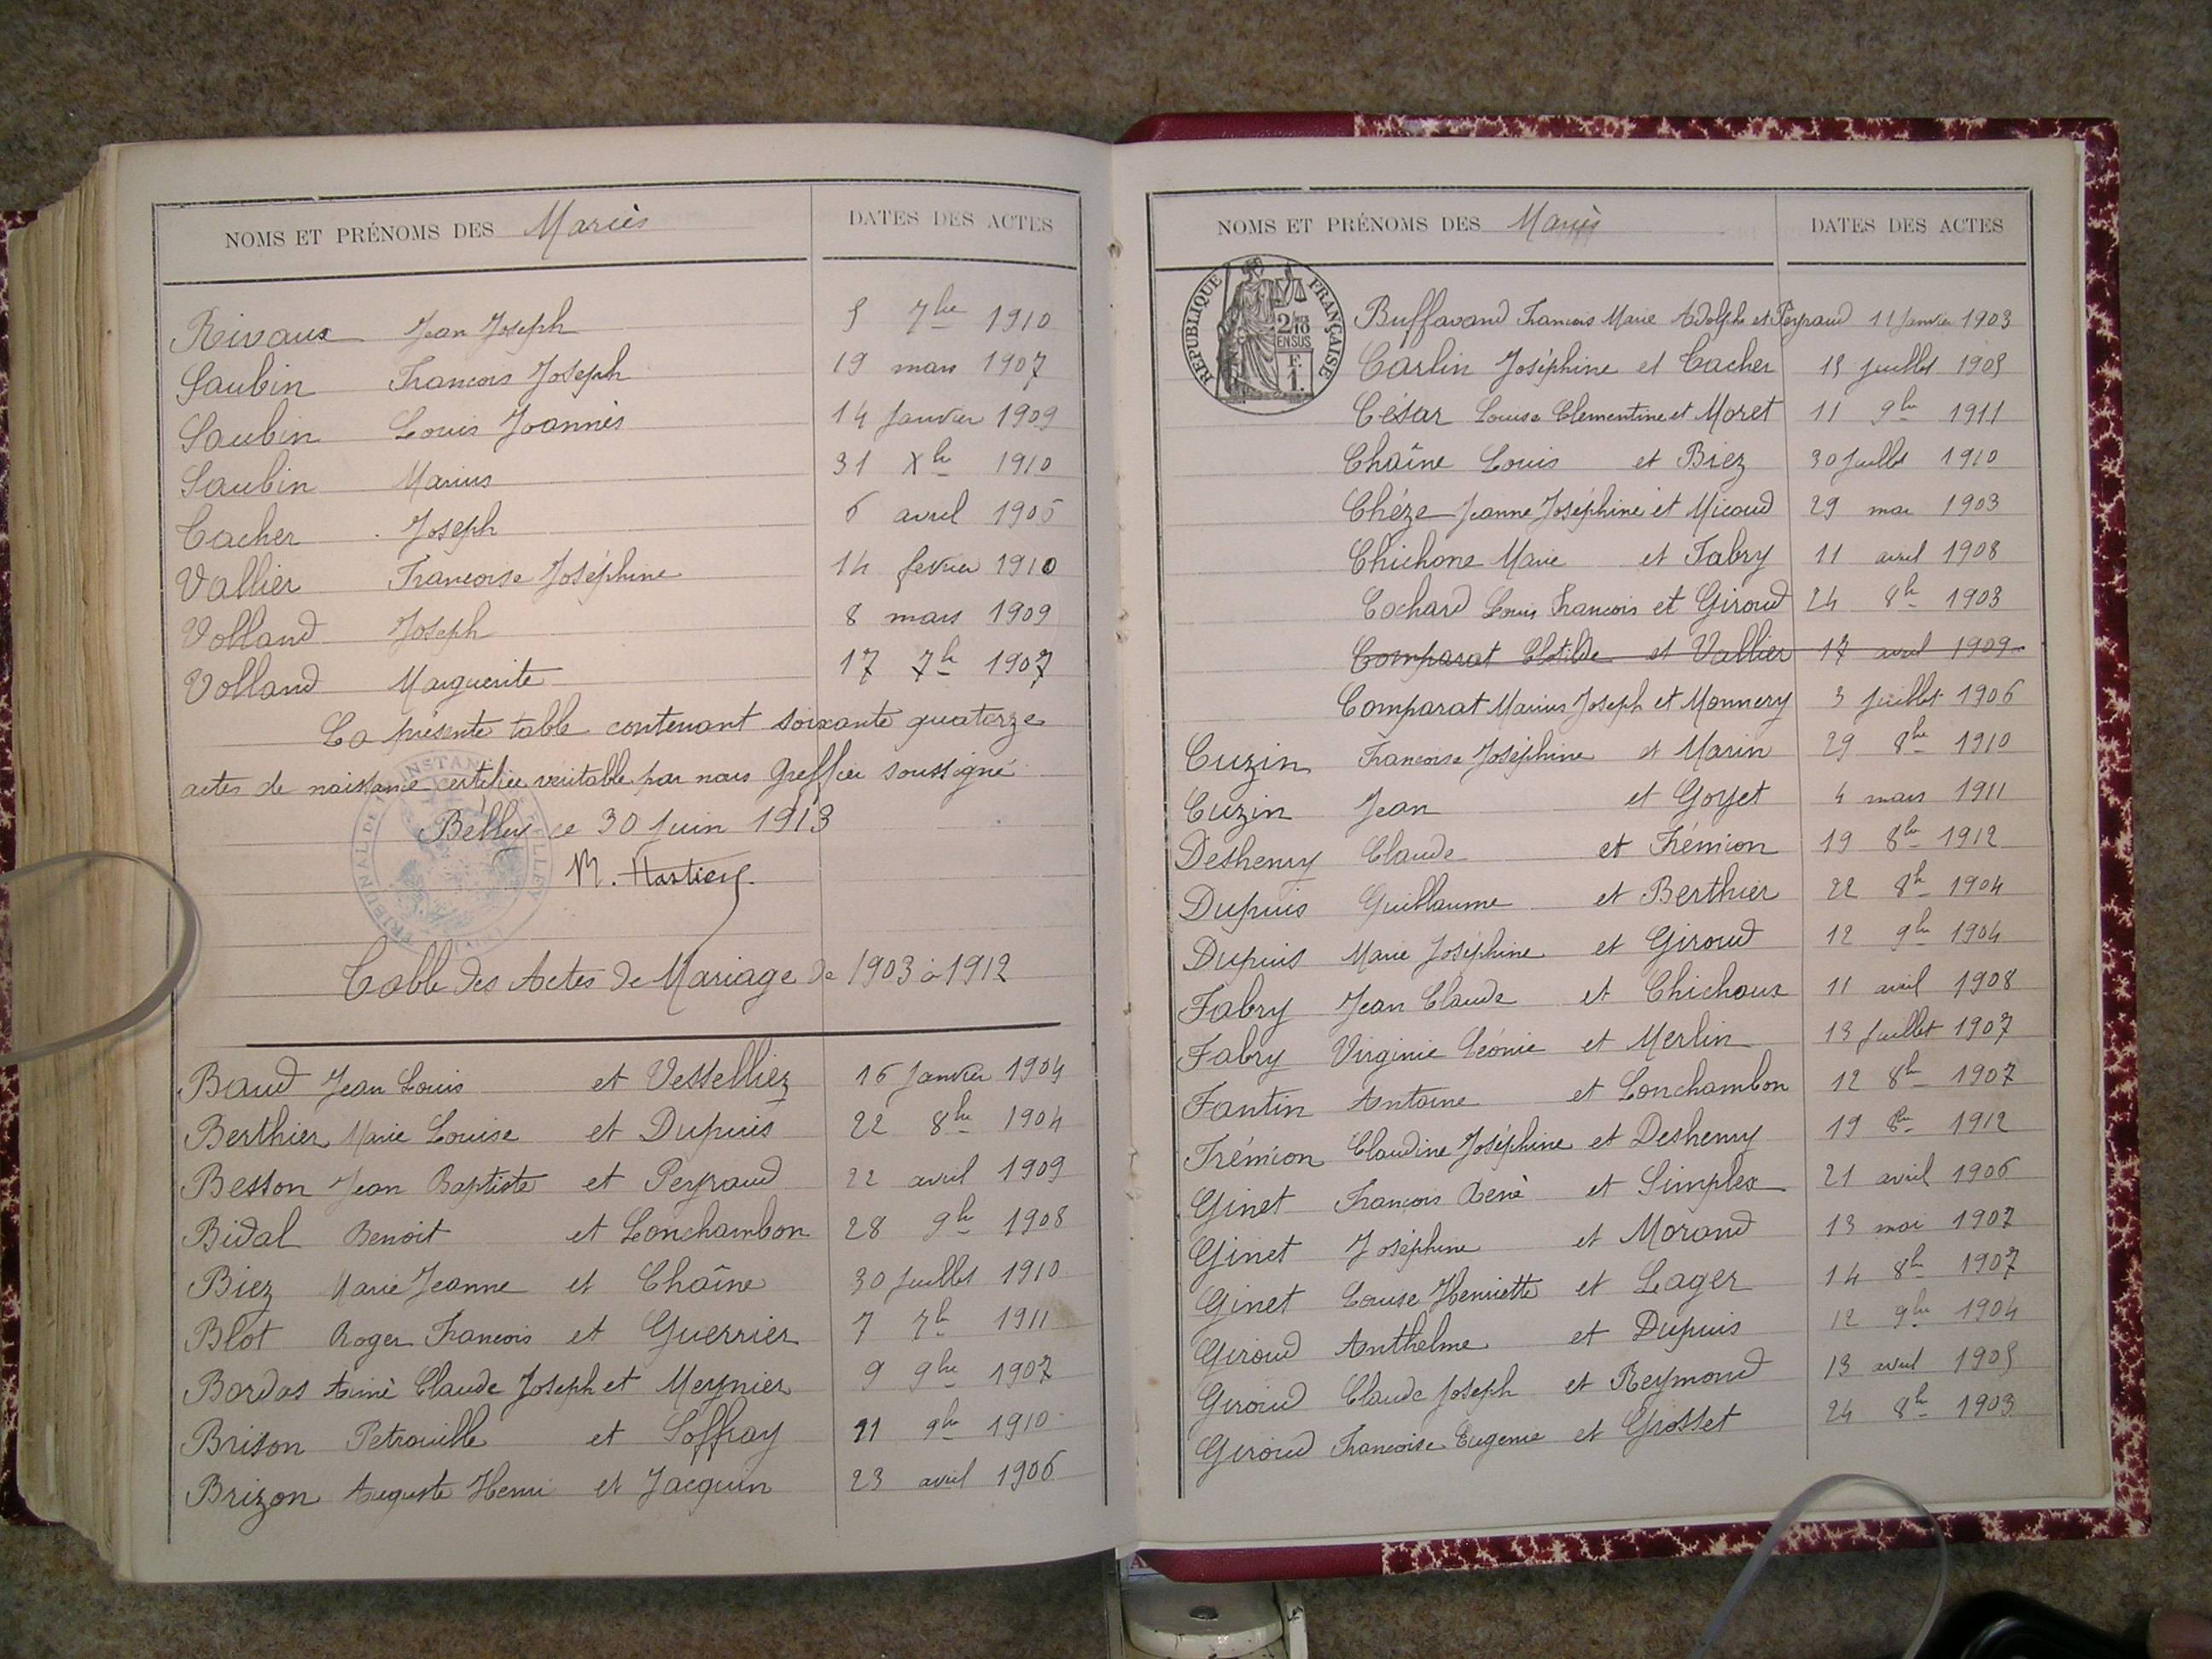 NOMS ET PRÉNOMS DES Mariés DATES DES ACTES
Rivaux Jean Joseph 5 7bre 1910
Saubin Francois Joseph 19 mars 1907
Saubin Louis Joannès 14 Janvier 1909
Saubin Marius 31 Xbre 1910
Tacher Joseph 6 avril 1906
Vallier Francoise Joséphine 14 fevrier 1910
Volland Joseph 8 mars 1909
Volland Marguerite 17 7bre 1907
La présente table contenant soixante quatorze
actes de naissance certifiée véritable par nous Greffier soussigné
Belley ce 30 Juin 1913
TRIBUNAL DE 1RE INSTANCE BELLEY
Table des Actes de Mariage de 1903 à 1912
Baud Jean Louis et Vesselliez 16 Janvier 1904
Berthier Marie Louise et Dupuis 22 8bre 1904
Besson Jean Baptiste et Peyraud 22 avril 1909
Bidal Benoit et Lonchambon 28 9bre 1908
Biez Marie Jeanne et Chaîne 30 Juillet 1910
Blot Roger Francois et Guerrier 7 7bre 1911
Bordas Aimé Claude Joseph et Meynier 9 9bre 1907
Brison Petronille et Soffray 21 9bre 1910
Brizon Auguste Henri et Jacquin 23 avril 1906
NOMS ET PRÉNOMS DES Mariés DATES DES ACTES
RÉPUBLIQUE FRANÇAISE
2/10 EN SUS
F. 1.
Buffavand Francois Marie Adolphe et Peyraud 11 Janvier 1903
Carlin Joséphine et Tacher 15 Juillet 1905
César Louise Clementine et Moret 11 9bre 1911
Chaîne Louis et Biez 30 Juillet 1910
Chéze Jeanne Joséphine et Micoud 29 mai 1903
Chichone Marie et Fabry 11 avril 1908
Cochard Louis Francois et Giroud 24 8bre 1903
Comparat Clotilde et Vallier 17 avril 1909
Comparat Marius Joseph et Monnery 3 Juillet 1906
Cuzin Francoise Joséphine et Marin 29 8bre 1910
Cuzin Jean et Goyet 4 mars 1911
Deshenry Claude et Frémion 19 8bre 1912
Dupuis Guillaume et Berthier 22 8bre 1904
Dupuis Marie Joséphine et Giroud 12 9bre 1904
Fabry Jean Claude et Chichoux 11 avril 1908
Fabry Virginie Léonie et Merlin 13 Juillet 1907
Fantin Antoine et Lonchambon 12 8bre 1907
Frémion Claudine Joséphine et Deshenry 19 8bre 1912
Ginet Francois René et Simplex 21 avril 1906
Ginet Joséphine et Morand 13 mai 1907
Ginet Louise Henriette et Lager 14 8bre 1907
Giroud Anthelme et Dupuis 12 9bre 1904
Giroud Claude Joseph et Reymond 13 avril 1905
Giroud Francoise Eugenie et Grosset 24 8bre 1903